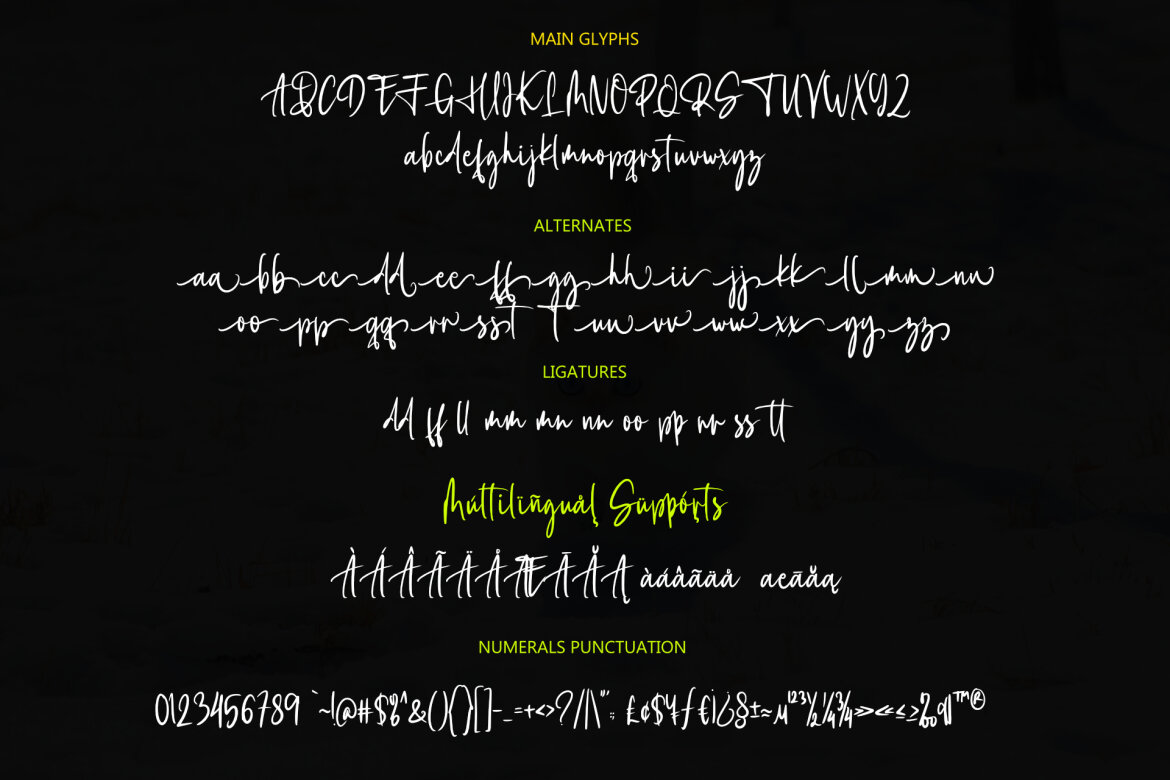 MAIN GLYPHS
ABCDEFGHIJKLMNOPQRSTUVWXYZ
abcdefghijklmnopqrstuvwxyz
ALTERNATES
aa bb cc dd ee ff gg hh ii jj kk ll mm nn
oo pp qq rr ss t T uu vv ww xx yy zz
LIGATURES
dd ff ll mm mn nn oo pp rr ss tt
Múttilïñguåļ Süppóŗts
ÀÁÂÃÄÅÆĀĂĄ àáâãäå aeāăą
NUMERALS PUNCTUATION
0123456789 `~!@#$%^&(){}[]-_=+<>?/|\"':; £¢$¥ƒ€¡¿§±≈µ¹²³½¼¾»«≤≥‰¶™®